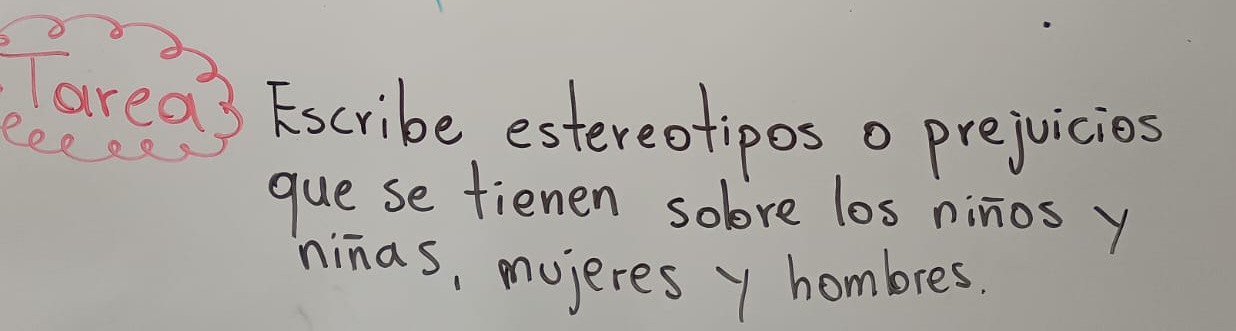 Tarea
Escribe estereotipos o prejuicios
que se tienen sobre los niños y
niñas, mujeres y hombres.